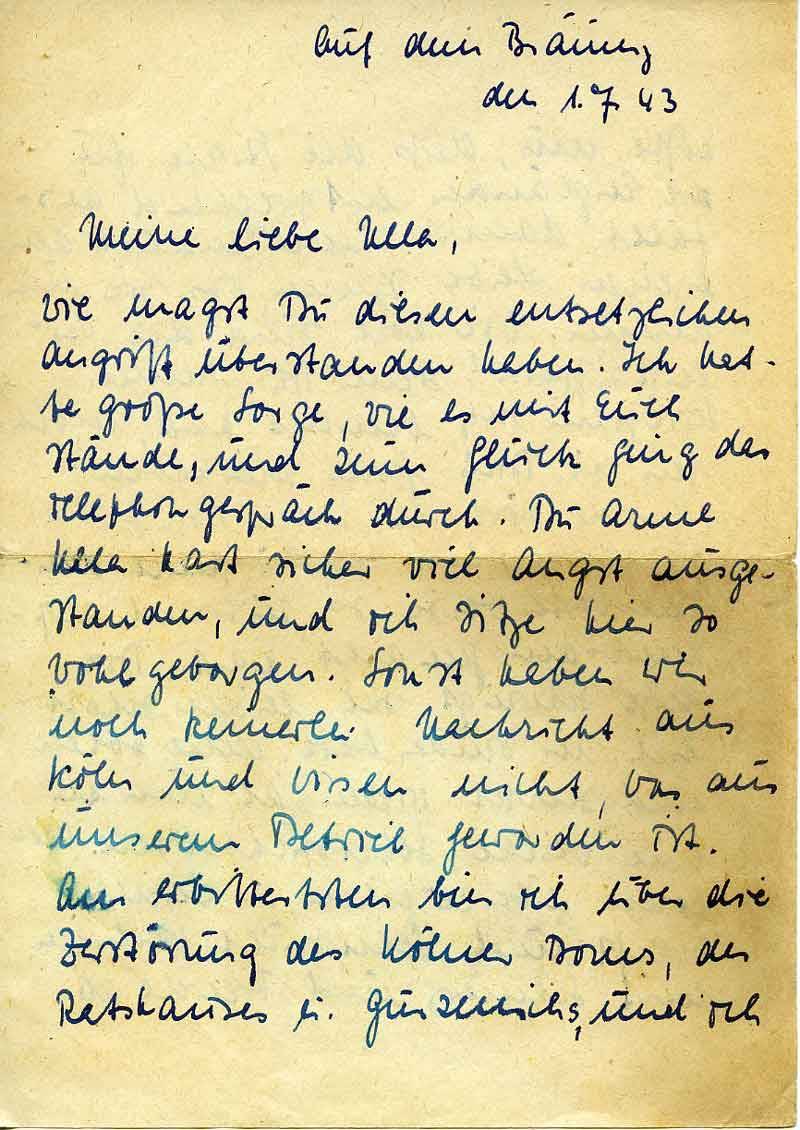 Auf dem Bräunig
den 1.7.43
Meine liebe Ulla,
wie magst Du diesen entsetzlichen
Angriff überstanden haben. Ich hat-
te große Sorge, wie es mit Euch
stände, und zum Glück ging das
Telephongespräch durch. Du arme
Ulla hast sicher viel Angst ausge-
standen, und ich sitze hier so
wohlgeborgen. Sonst haben wir
noch keinerlei Nachricht aus
Köln und wissen nicht, was aus
unserem Betrieb geworden ist.
Am erbittertsten bin ich über die
Zerstörung des Kölner Doms, des
Rathauses u. Gürzenichs, und ich